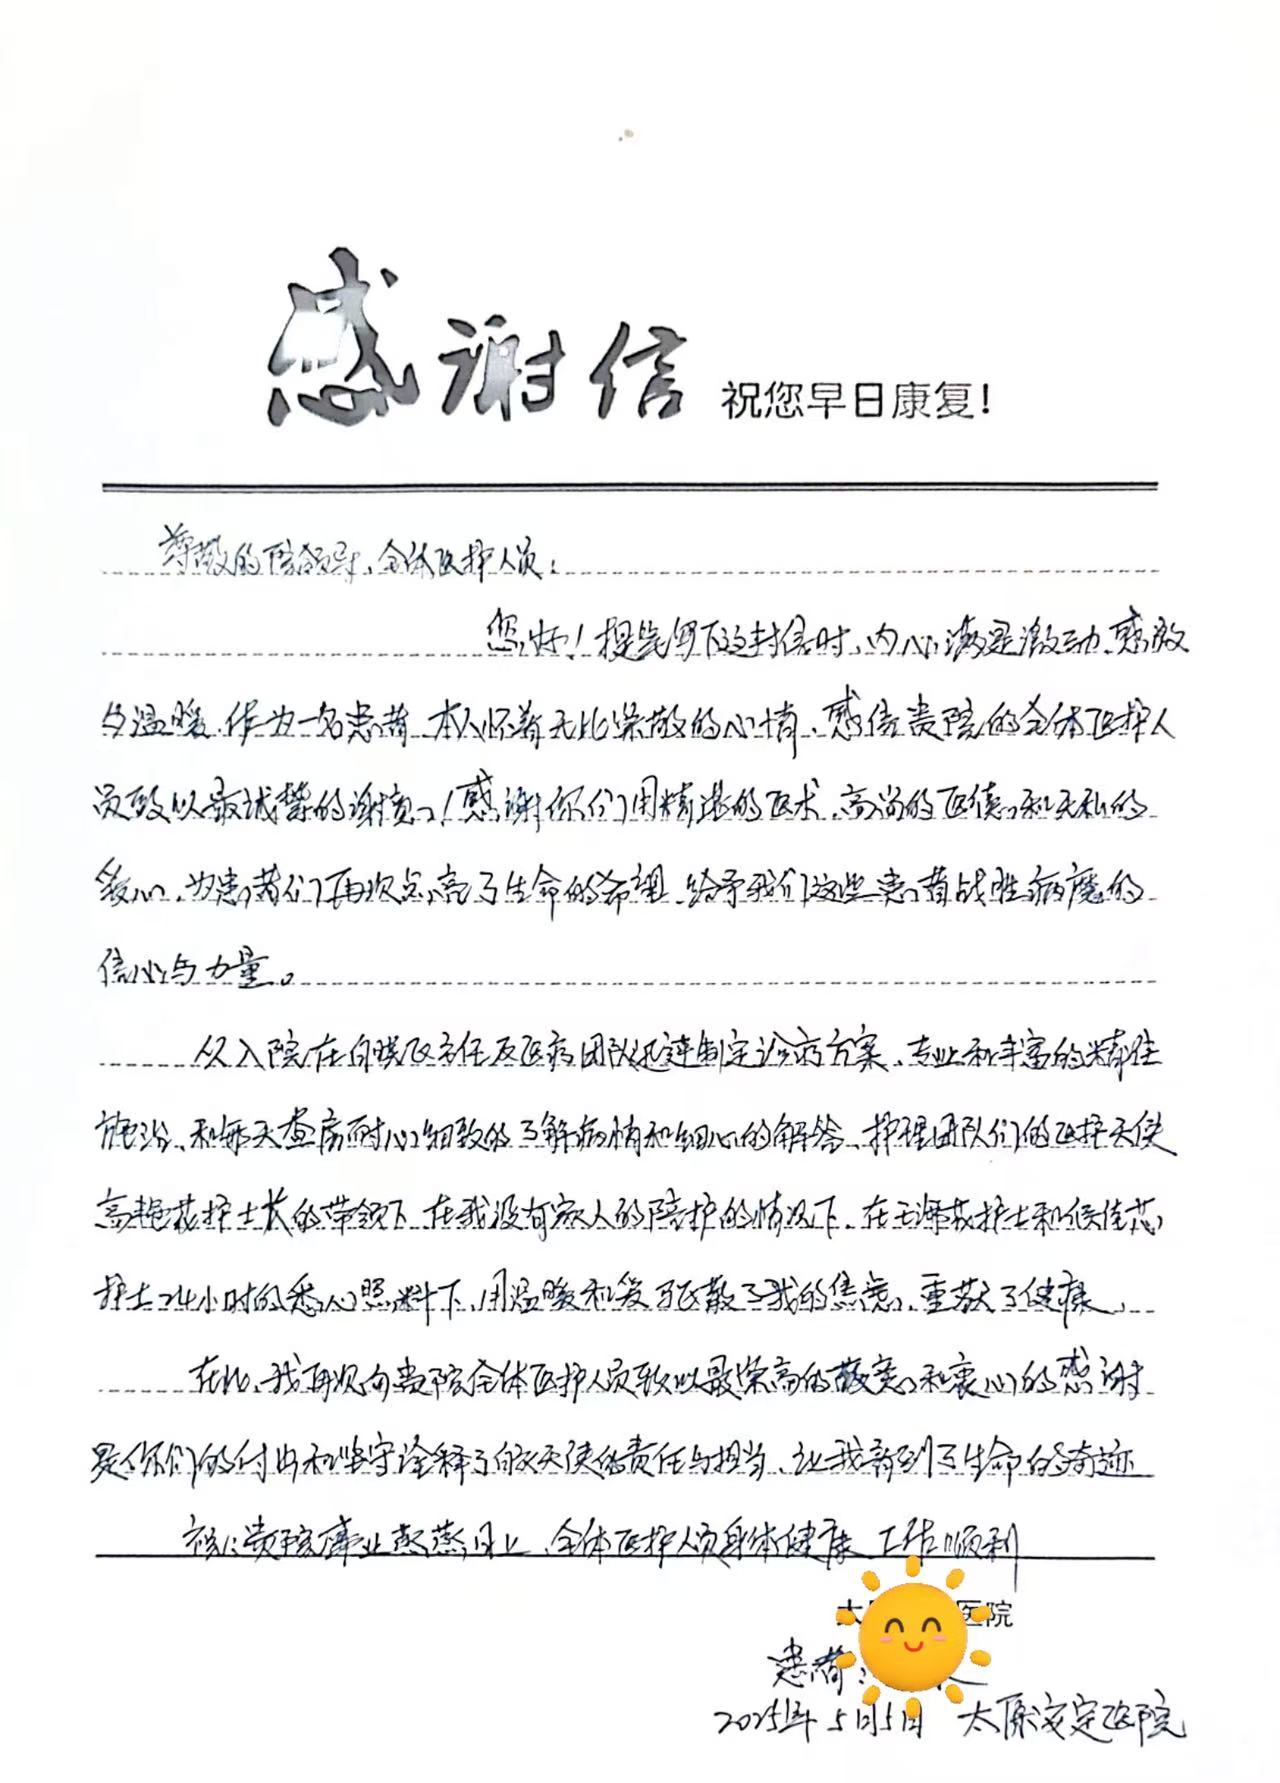 感谢信 祝您早日康复！
尊敬的院领导、全体医护人员：
您好！提笔写下这封信时，内心满是激动、感激
与温暖，作为一名患者，本人怀着无比崇敬的心情，感信贵院的全体医护人
员致以最诚挚的谢意！感谢你们用精湛的医术，高尚的医德和无私的
爱心，为患者们再次点亮了生命的希望，给予我们这些患者战胜病魔的
信心与力量。
从入院在白 主任及医疗团队迅速制定诊疗方案，专业和丰富的精准
施治，和每天查房耐心细致的了解病情和细心的解答，护理团队们的医护天使
高艳花护士长的带领下，在我没有家人的陪护的情况下，在王 护士和侯佳芯
护士24小时的悉心照料下，用温暖和爱 驱散了我的焦虑，重获了健康，
在此，我再次向贵院全体医护人员致以最崇高的敬意和衷心的感谢
是你们的付出和坚守诠释了白衣天使的责任与担当，让我看到了生命的奇迹
祝：贵院事业蒸蒸日上，全体医护人员身体健康 工作顺利
医院
患者：
2025年5月5日 太原安定医院